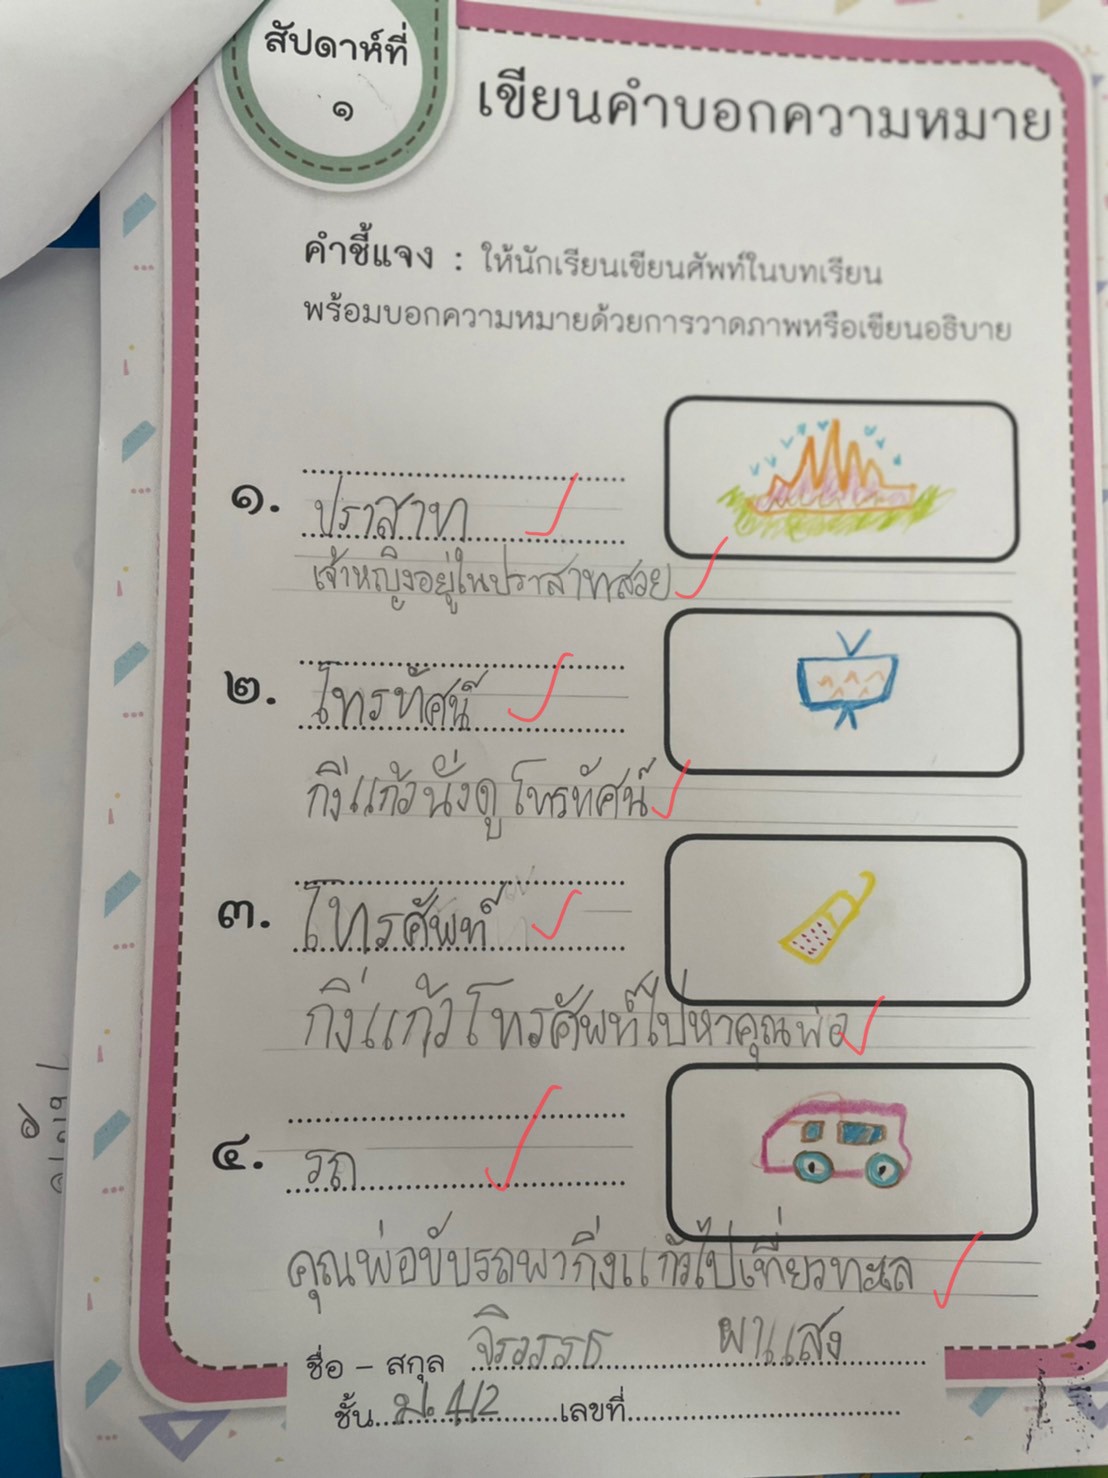 สัปดาห์ที่
๑
เขียนคำบอกความหมาย
คำชี้แจง : ให้นักเรียนเขียนศัพท์ในบทเรียน
พร้อมบอกความหมายด้วยการวาดภาพหรือเขียนอธิบาย
๑. ปราสาท
เจ้าหญิงอยู่ในปราสาทสวย
๒. โทรทัศน์
กิ่งแก้วนั่งดูโทรทัศน์
๓. โทรศัพท์
กิ่งแก้วโทรศัพท์ไปหาคุณพ่อ
๔. รถ
คุณพ่อขับรถพากิ่งแก้วไปเที่ยวทะเล
ชื่อ - สกุล จิรวรรธ ผาแสง
ชั้น ม 4/2 เลขที่